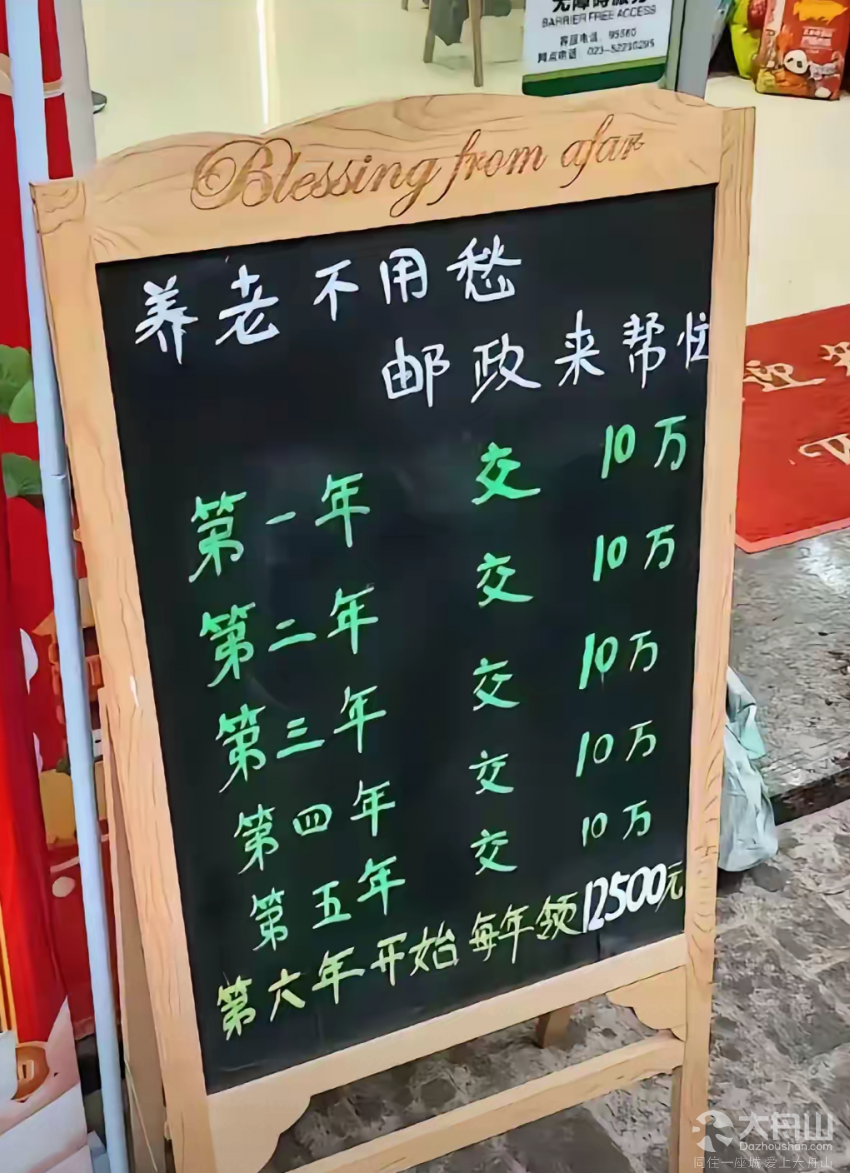 BARRIER FREE ACCESS
客服电话：95580
网点电话：023-52210295
Blessing from afar
养老不用愁
邮政来帮忙
第一年 交 10万
第二年 交 10万
第三年 交 10万
第四年 交 10万
第五年 交 10万
第六年开始每年领12500元
大舟山
Dazhoushan.com
同住一座城 爱上大舟山